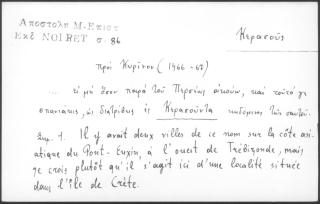 Αποστολη Μ. Επιστ
Εκδ NOIRET σ. 86
Κερασοῦς
πρὸς Κυρῖνον (1466-67)
... εἰ μὴ ὅσον παρὰ τοῦ Περσέως ἀκούω, καὶ τοῦτό γε
σπανιάκις, ὡς διατρίβεις ἐς Κερασοῦντα κηδόμενος τῶν σαυτοῦ.
Σημ. 1. Il y avait deux villes de ce nom sur la côte asi-
atique du Pont-Euxin, à l'ouest de Trébizonde, mais
je crois plutôt qu'il s'agit ici d'une localité située
dans l'île de Crète.